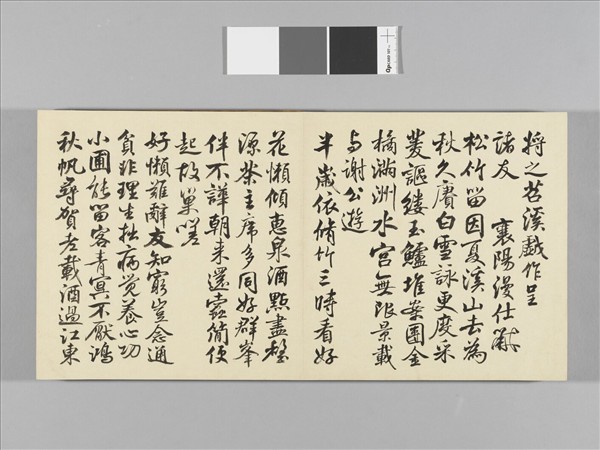 將之苕溪戲作呈
諸友 襄陽漫仕黻
松竹留因夏溪山去為
秋久賡白雪詠更度采
菱謳縷玉鱸堆案團金
橘滿洲水宮無限景載
与謝公遊
半歲依脩竹三時看好
花懶傾惠泉酒點盡壑
源茶主席多同好群峯
伴不譁朝来還蠹簡便
起故巢嗟
好懶難辭友知窮豈念通
貧非理生拙病覺養心功
小圃能留客青冥不厭鴻
秋帆尋賀老載酒過江東